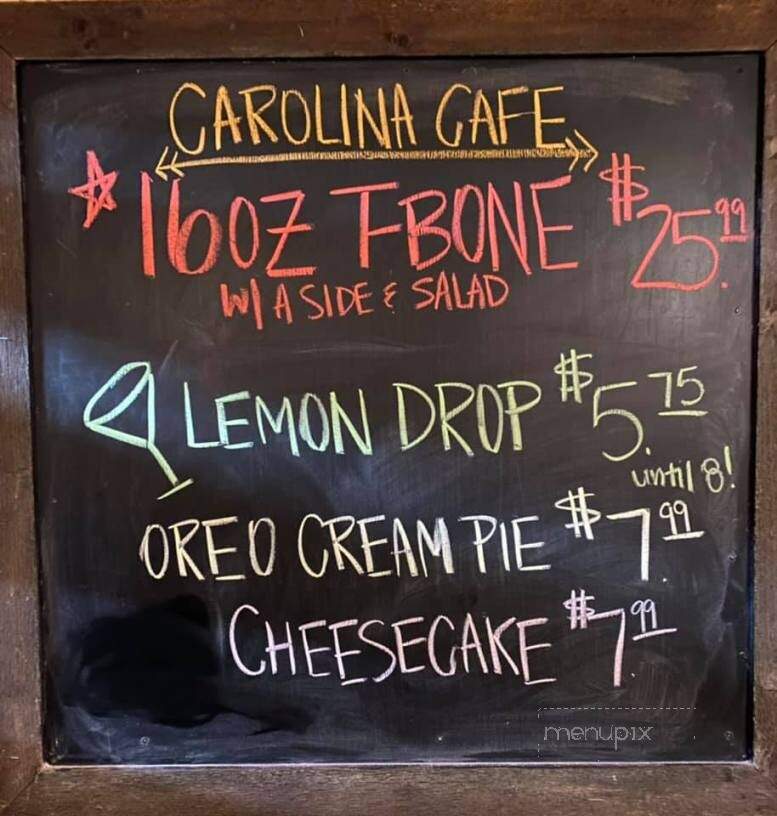 CAROLINA CAFE
16OZ T-BONE $25.99
W/ A SIDE & SALAD
LEMON DROP $5.75
until 8!
OREO CREAM PIE $7.99
CHEESECAKE $7.99
menupix